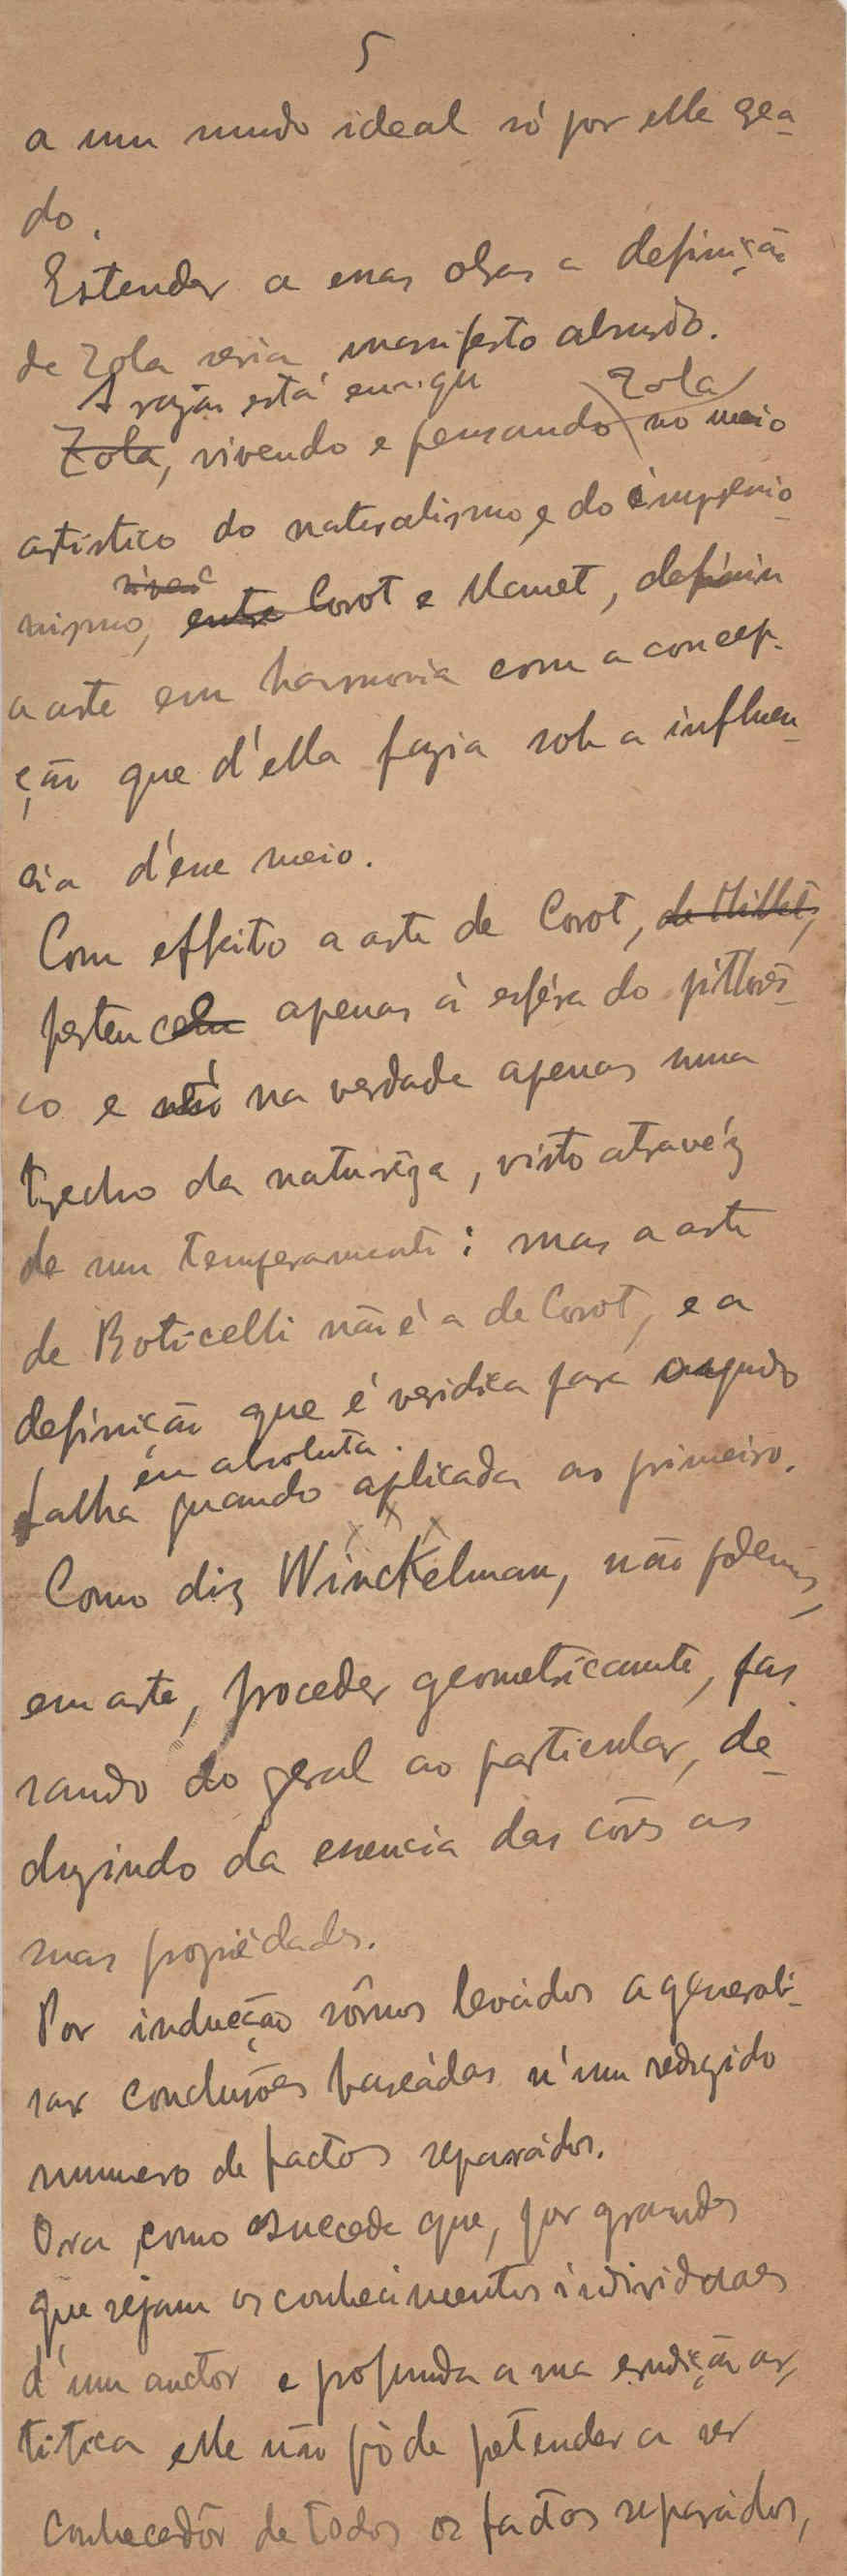 5
a um mundo ideal só por elle gea-
do.
Estender a essas obras a definição
de Zola seria manifesto absurdo.
A razão está em que Zola
Zola, vivendo e pensando no meio
artistico do naturalismo e do impressio-
nismo, entre Corot e Manet, definiu
a arte em harmonia com a concep-
ção que d'ella fazia sob a influen-
cia d'esse meio.
Com effeito a arte de Corot, de Millet,
pertence apenas à esféra do pittores-
co e é na verdade apenas uma
trecho da naturêza, visto atravéz
de um temperamento: mas a arte
de Boticelli não é a de Corot, e a
definição que é veridica para o segundo
em absoluto.
falha quando aplicada ao primeiro.
x x x
Como diz Winckelman, não podemos,
em arte, proceder geometricamente, pas-
sando do geral ao particular, de-
duzindo da essencia das côres as
suas propiédades.
Por inducção sômos levádos a generali-
sar conclusões baseádas n'um redusido
numero de factos separádos.
Ora como succede que, por grandes
que sejam os conhecimentos individuaes
d'um auctor e profunda a sua erudição ar-
titica elle não póde pretender a ser
conhecedôr de todos os factos separádos,